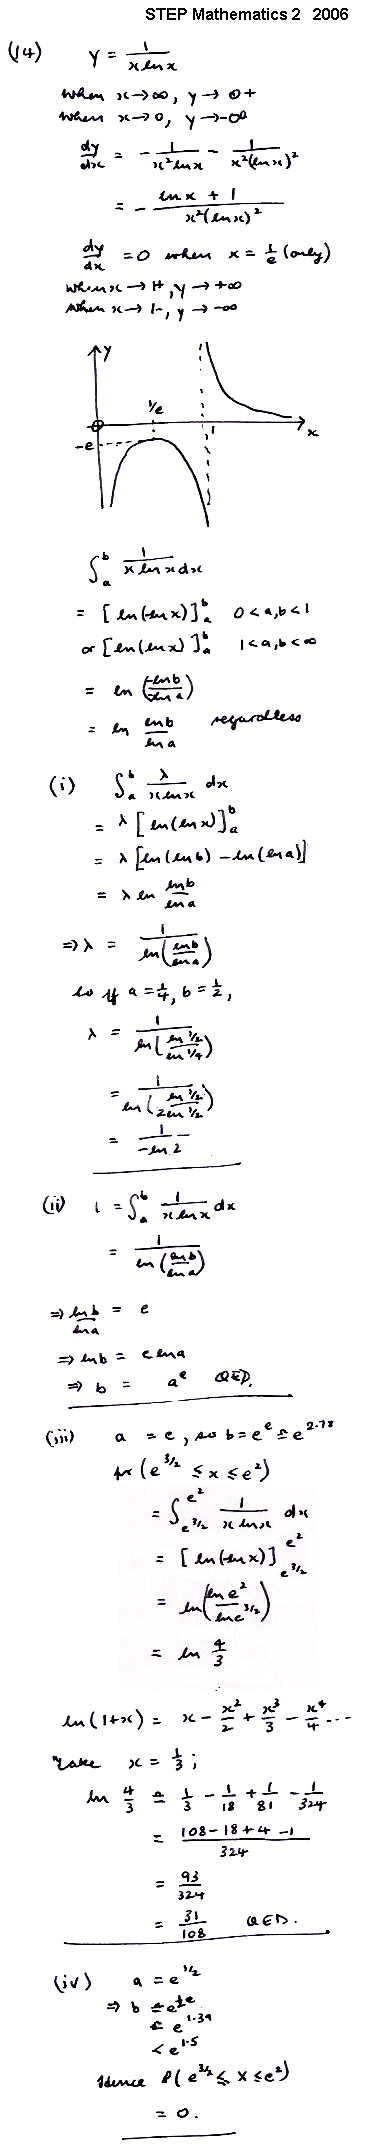 STEP Mathematics 2 2006
(14) y = 1/(x ln x)
when x → ∞, y → 0+
when x → 0, y → -∞
dy/dx = - 1/(x² ln x) - 1/(x² (ln x)²)
= - (ln x + 1)/(x² (ln x)²)
dy/dx = 0 when x = 1/e (only)
when x → 1+, y → +∞
when x → 1-, y → -∞
y
1/e
1
x
-e
∫_a^b 1/(x ln x) dx
= [ln(-ln x)]_a^b 0 < a, b < 1
or [ln(ln x)]_a^b 1 < a, b < ∞
= ln (-ln b/-ln a)
= ln (ln b/ln a) regardless
(i) ∫_a^b λ/(x ln x) dx
= λ [ln(ln x)]_a^b
= λ [ln(ln b) - ln(ln a)]
= λ ln (ln b/ln a)
⇒ λ = 1/ln(ln b/ln a)
so if a = 1/4, b = 1/2,
λ = 1/ln(ln 1/2/ln 1/4)
= 1/ln(ln 1/2/2 ln 1/2)
= 1/(-ln 2)
(ii) 1 = ∫_a^b 1/(x ln x) dx
= 1/ln(ln b/ln a)
⇒ ln b/ln a = e
⇒ ln b = e ln a
⇒ b = a^e QED.
(iii) a = e, so b = e^e ≏ e^2.78
pr(e^3/2 ≤ x ≤ e²)
= ∫_{e^3/2}^{e²} 1/(x ln x) dx
= [ln(-ln x)]_{e^3/2}^{e²}
= ln(ln e²/ln e^3/2)
= ln 4/3
ln(1+x) = x - x²/2 + x³/3 - x⁴/4 ...
Take x = 1/3;
ln 4/3 ≏ 1/3 - 1/18 + 1/81 - 1/324
= (108 - 18 + 4 - 1)/324
= 93/324
= 31/108 QED.
(iv) a = e^1/2
⇒ b = e^½e
≏ e^1.39
< e^1.5
Hence P(e^3/2 ≤ X ≤ e²)
= 0.